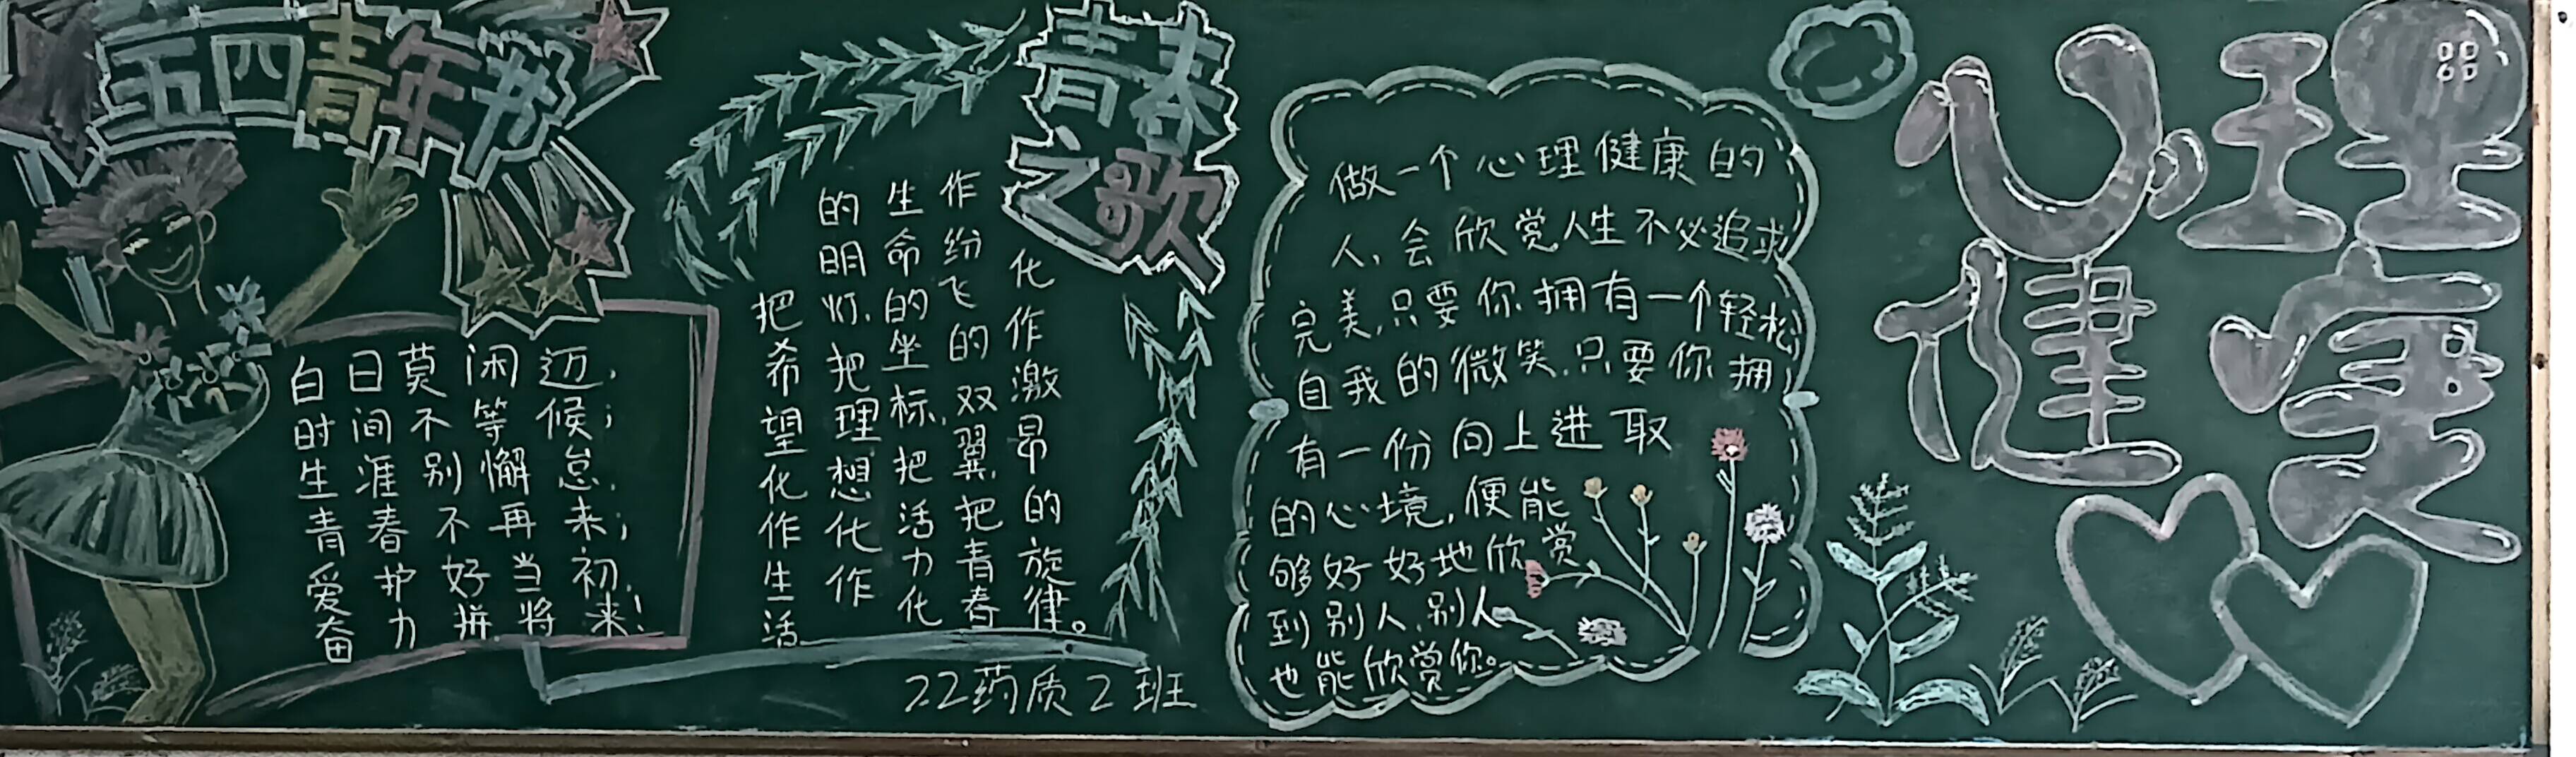 五四青年节
白日莫闲迈,
时间不等候;
生涯别懈怠,
青春不再来;
爱护好当初,
奋力拼将来!
青春
之歌
把希望化作生活
的明灯,把理想化作
生命的坐标,把活力化
作纷飞的双翼,把青春
化作激昂的旋律。
22药质2班
做一个心理健康的
人,会欣赏人生不必追求
完美,只要你拥有一个轻松
自我的微笑,只要你拥
有一份向上进取
的心境,便能
够好好地欣赏
到别人,别人
也能欣赏你。
心理
健康